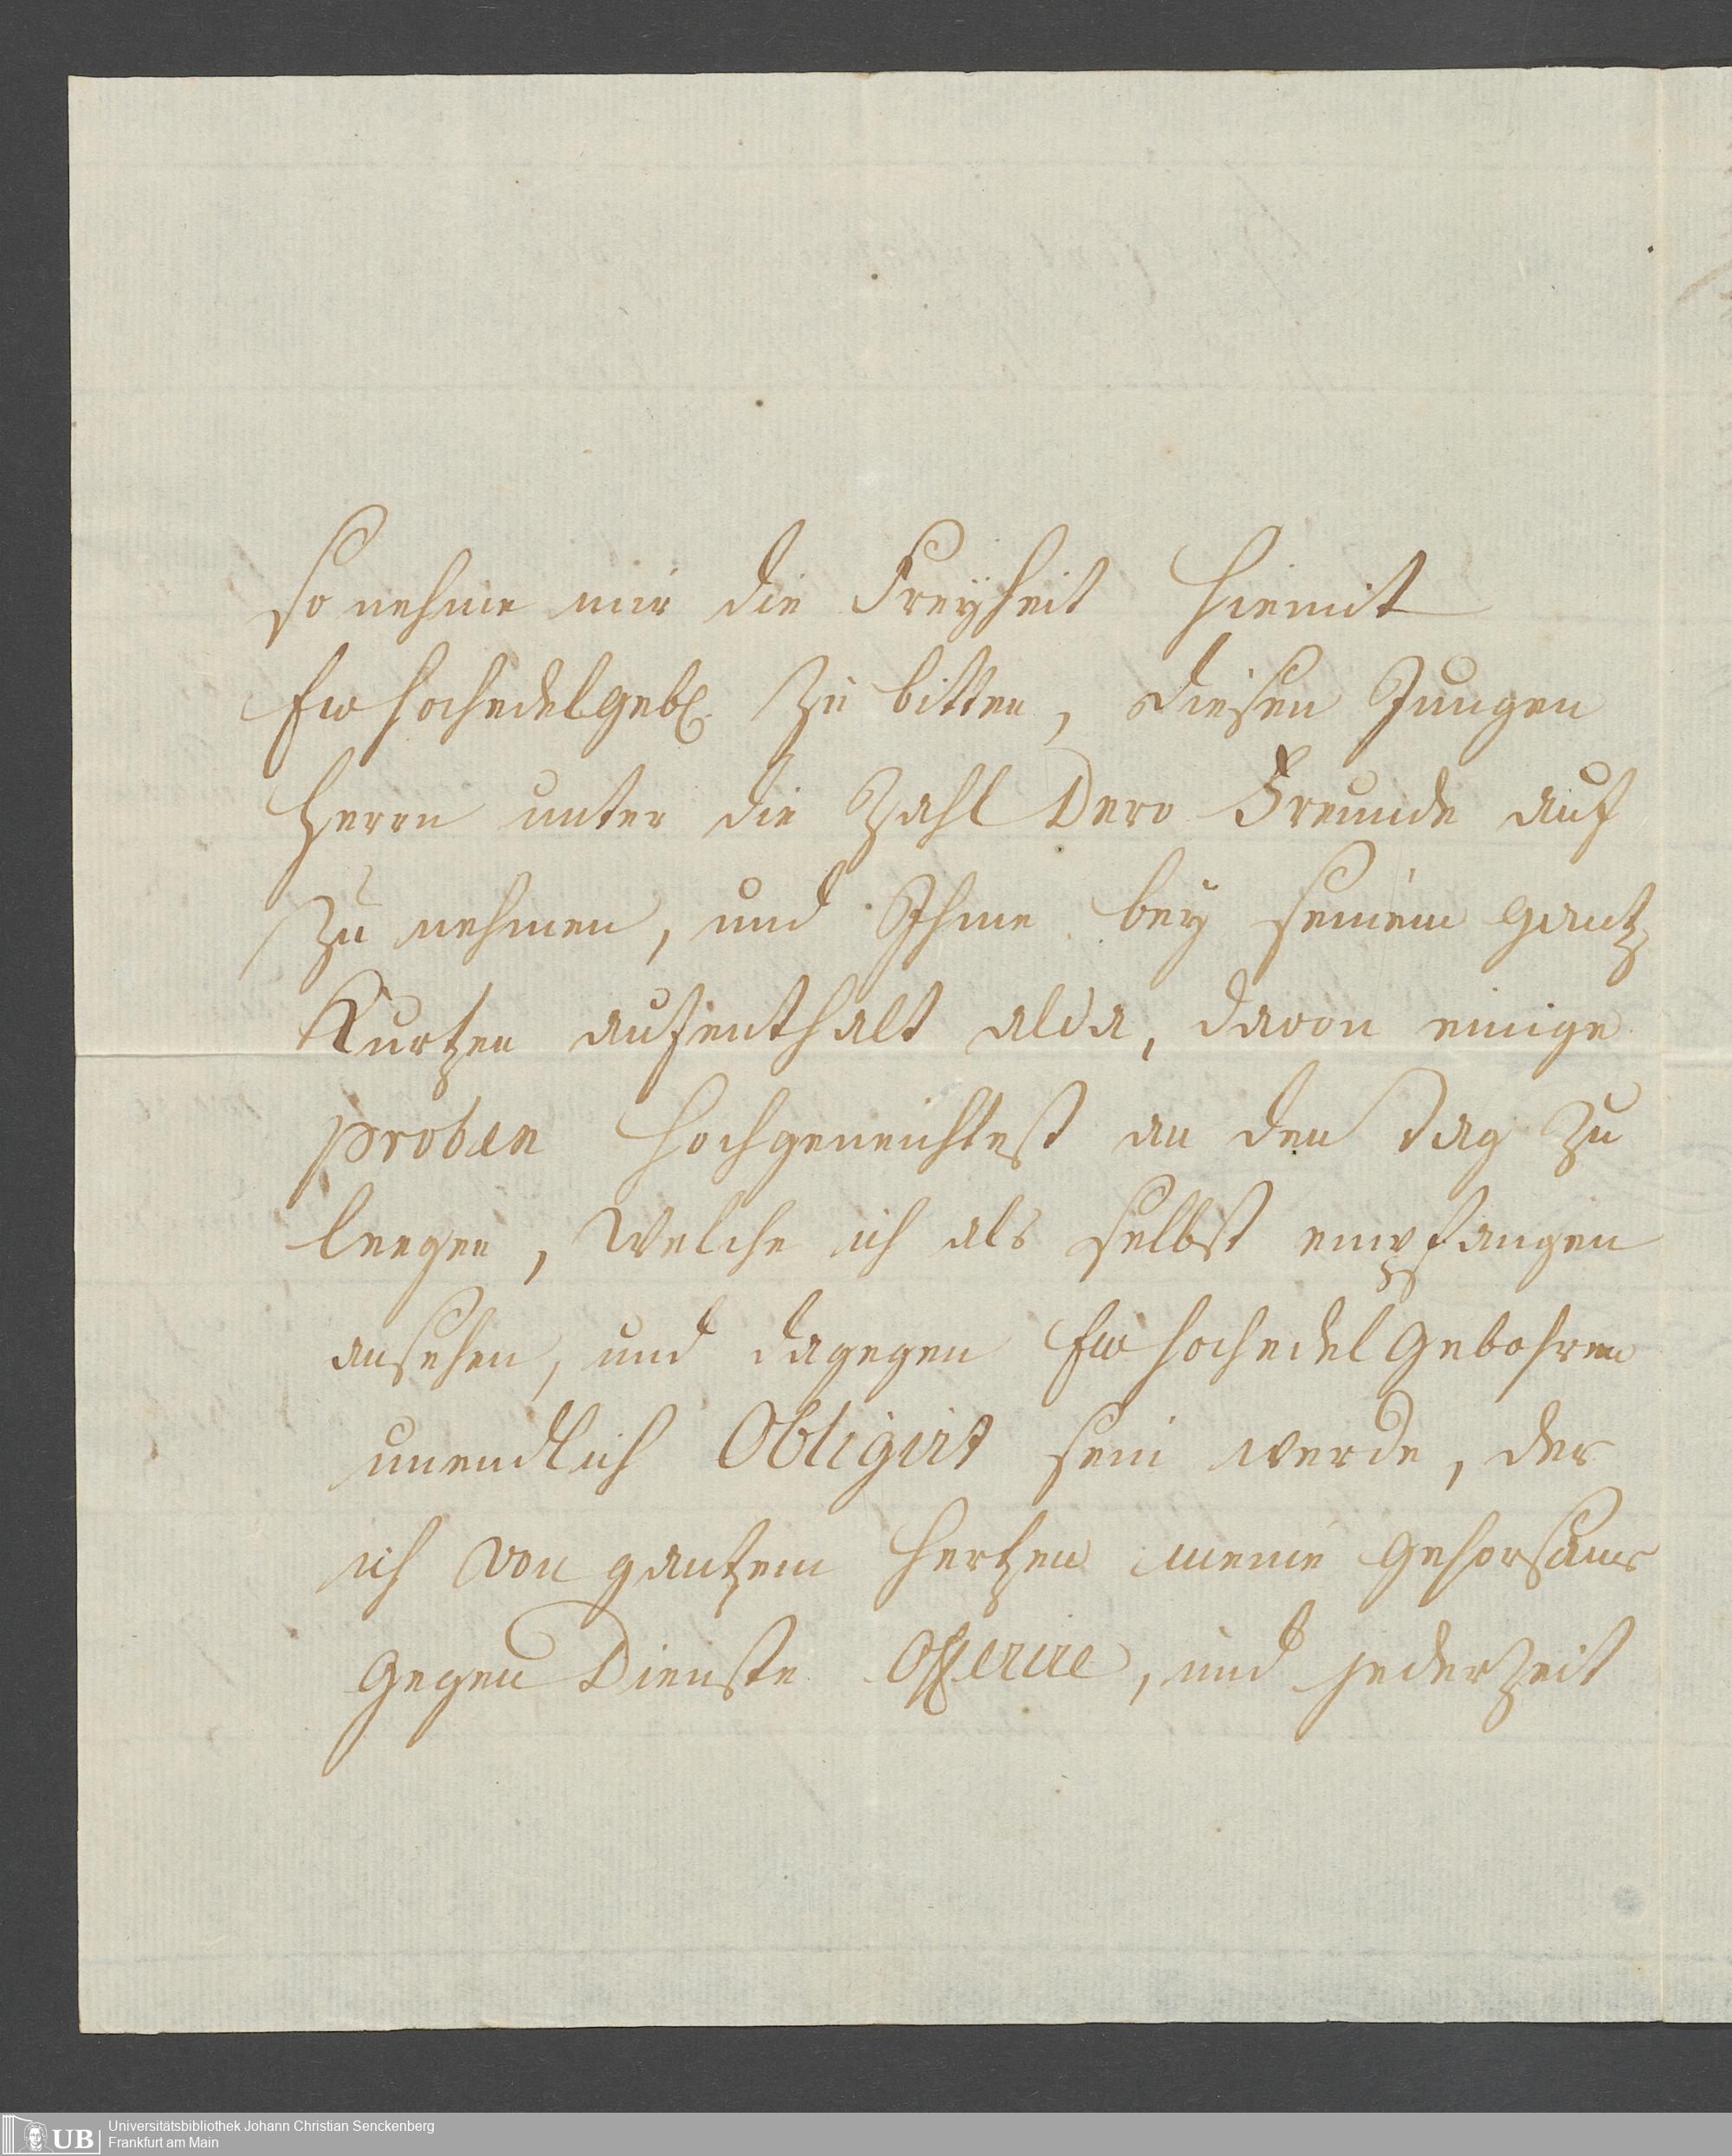 so nehme mir die Freyheit hiemit
Ew hochedelgeb. zu bitten, diesen Jungen
Herrn unter die Zahl Dero Freunde auf
zu nehmen, und Ihme bey seinem gantz
Kurtzen aufenthalt alda, davon einige
proben hochgeneichtest an den Tag zu
leegen, Welche ich als selbst empfangen
ansehen, und dagegen Ew hochedel Gebohren
unendlich Obligirt sein werde, der
ich von gantzem Hertzen meine Gehorsame
Gegen Dienste Offerire, und jederzeit
UB Universitätsbibliothek Johann Christian Senckenberg
Frankfurt am Main